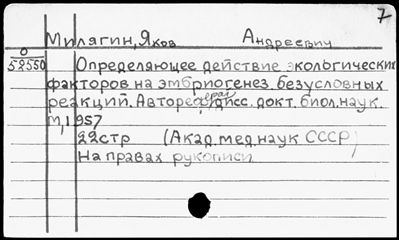 7
Милягин, Яков Андреевич
0
58550
Определяющее действие экологических
факторов на эмбриогенез безусловных
реакций. Автореферат дисс. докт. биол. наук.
М, 1957
22стр (Акад. мед. наук СССР)
На правах рукописи